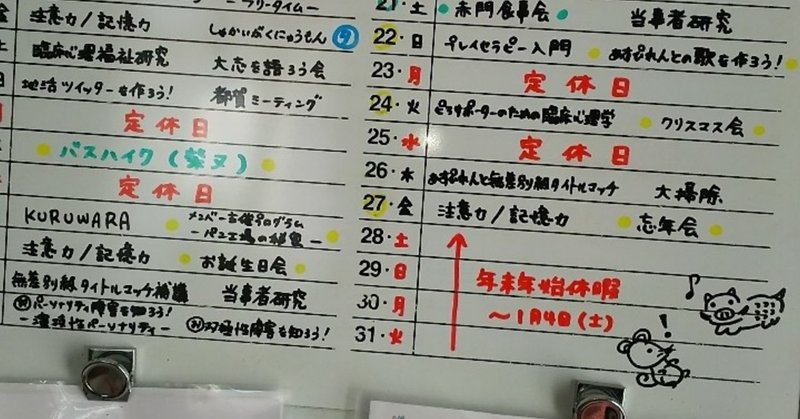 ーフリータイムー
金 注意力/記憶力 しゃかいがくにゅうもん
臨床心理福祉研究 大志を語ろう会
日 地活ツイッターを作ろう! 都賀ミーティング
定休日
バスハイク(柴又)
定休日
KURUWARA
注意力/記憶力 お誕生日会
無差別級タイトルマッチ補講 当事者研究
パーソナリティ障害を知ろう!
双極性障害を知ろう!
21・土 赤門食事会 当事者研究
22・日 プレイセラピー入門 あすぴれんとの歌を作ろう!
23・月 定休日
24・火 ピアサポーターのための臨床心理学 クリスマス会
25・水 定休日
26・木 あすぴれんと無差別級タイトルマッチ 大掃除
27・金 注意力/記憶力 忘年会
28・土
29・日 年末年始休暇
30・月 〜1月4日(土)
31・火